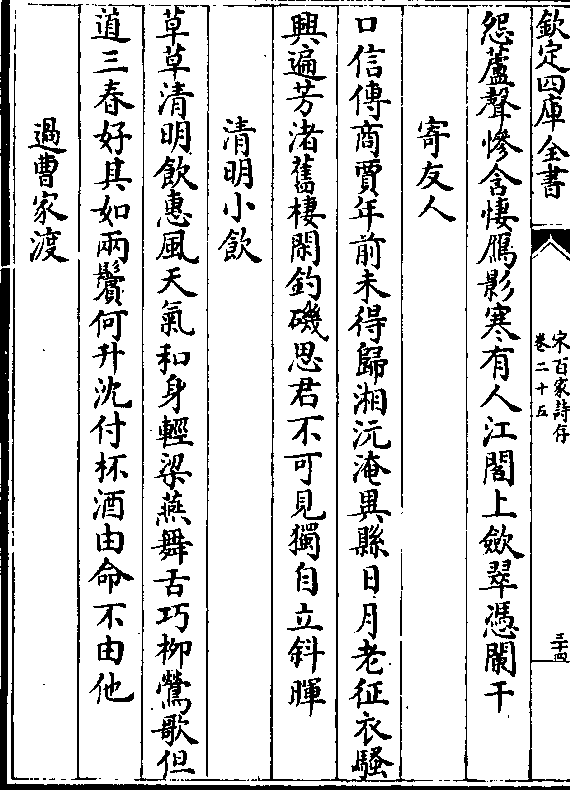 欽定四庫全書
宋百家詩存
卷二十五
三十四
怨蘆聲慘含悽鴈影寒有人江閣上斂翠憑闌干
寄友人
口信傳商賈年前未得歸湘沅淹異縣日月老征衣騷
興遍芳渚舊棲閑釣磯思君不可見獨自立斜暉
清明小飲
草草清明飲惠風天氣和身輕梁燕舞舌巧柳鶯歌但
道三春好其如兩鬢何升沈付杯酒由命不由他
過曹家渡